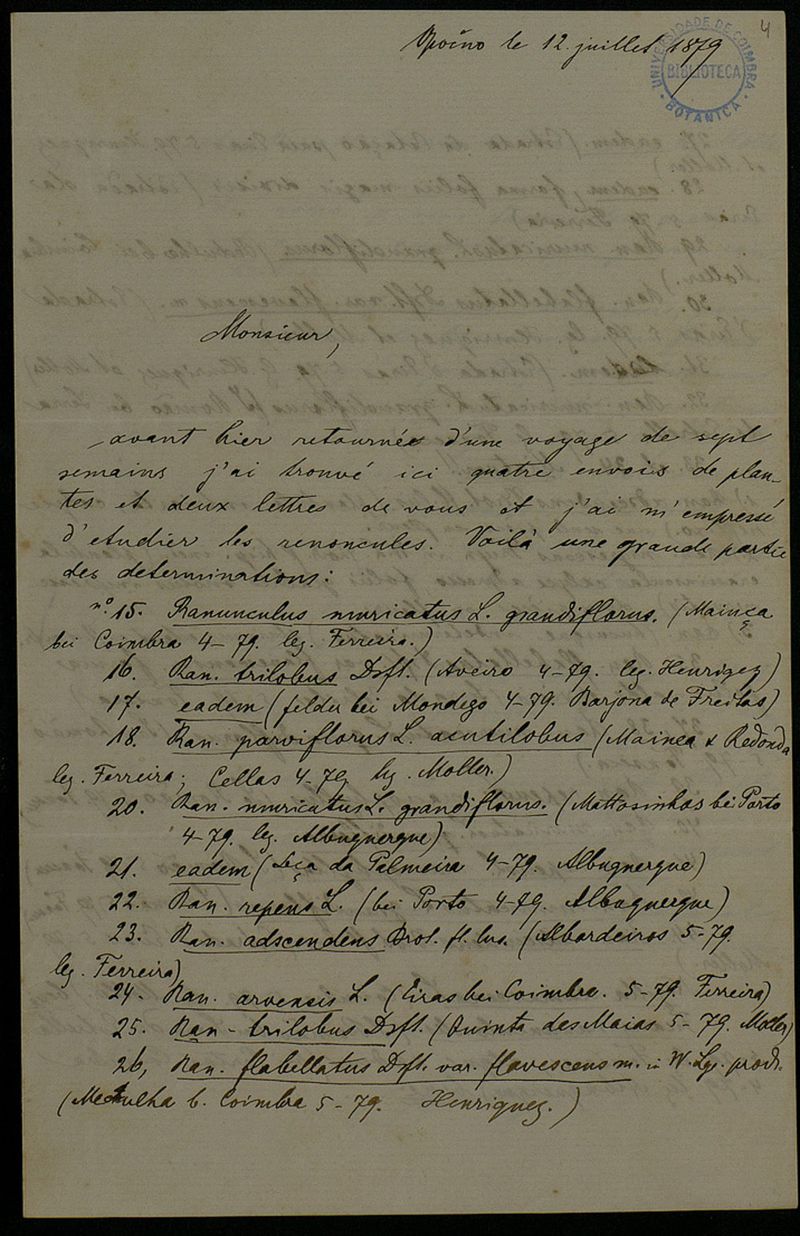 4
Opočno le 12. juillet 1879
UNIVERSIDADE DE COIMBRA
BIBLIOTECA
BOTANICA
Monsieur,
avant hier retournée d'une voyage de sept
semains j'ai trouvé ici quatre envois de plan-
tes et deux lettres de vous et j'ai m'empressé
d'etudier les renoncules. Voilà une grande partie
des determinations:
no. 15. Ranunculus muricatus L. grandiflorus. (Mainça
bei Coimbra 4-79. leg. Ferreira.)
16. Ran. trilobus Dsft. (Aveiro 4-79. leg. Henriqez)
17. eadem (felder bei Mondego 4-79. Barjona de Freitas)
18. Ran. parviflorus L. acutilobus (Mainea & Redonda
leg. Ferreira; Cellas 4-79 leg. Moller.)
20. Ran. muricatus L. grandiflorus. (Mattosinhos bei Porto
4-79. leg. Albuquerque)
21. eadem (Leça da Palmeira 4-79. Albuquerque)
22. Ran. repens L. (bei Porto 4-79. Albuquerque)
23. Ran. adscendens Brot. fl. lus. (Albardeiros 5-79.
leg. Ferreira)
24. Ran. arvensis L. (Eiras bei Coimbra. 5-79. Ferreira)
25. Ran. trilobus Dsft. (Quinta das Maias 5-79. Moller)
26, Ran. flabellatus Dsft. var. flavescens m. in W. Lge. prodr.
( b. Coimbra 5-79. Henriquez.)